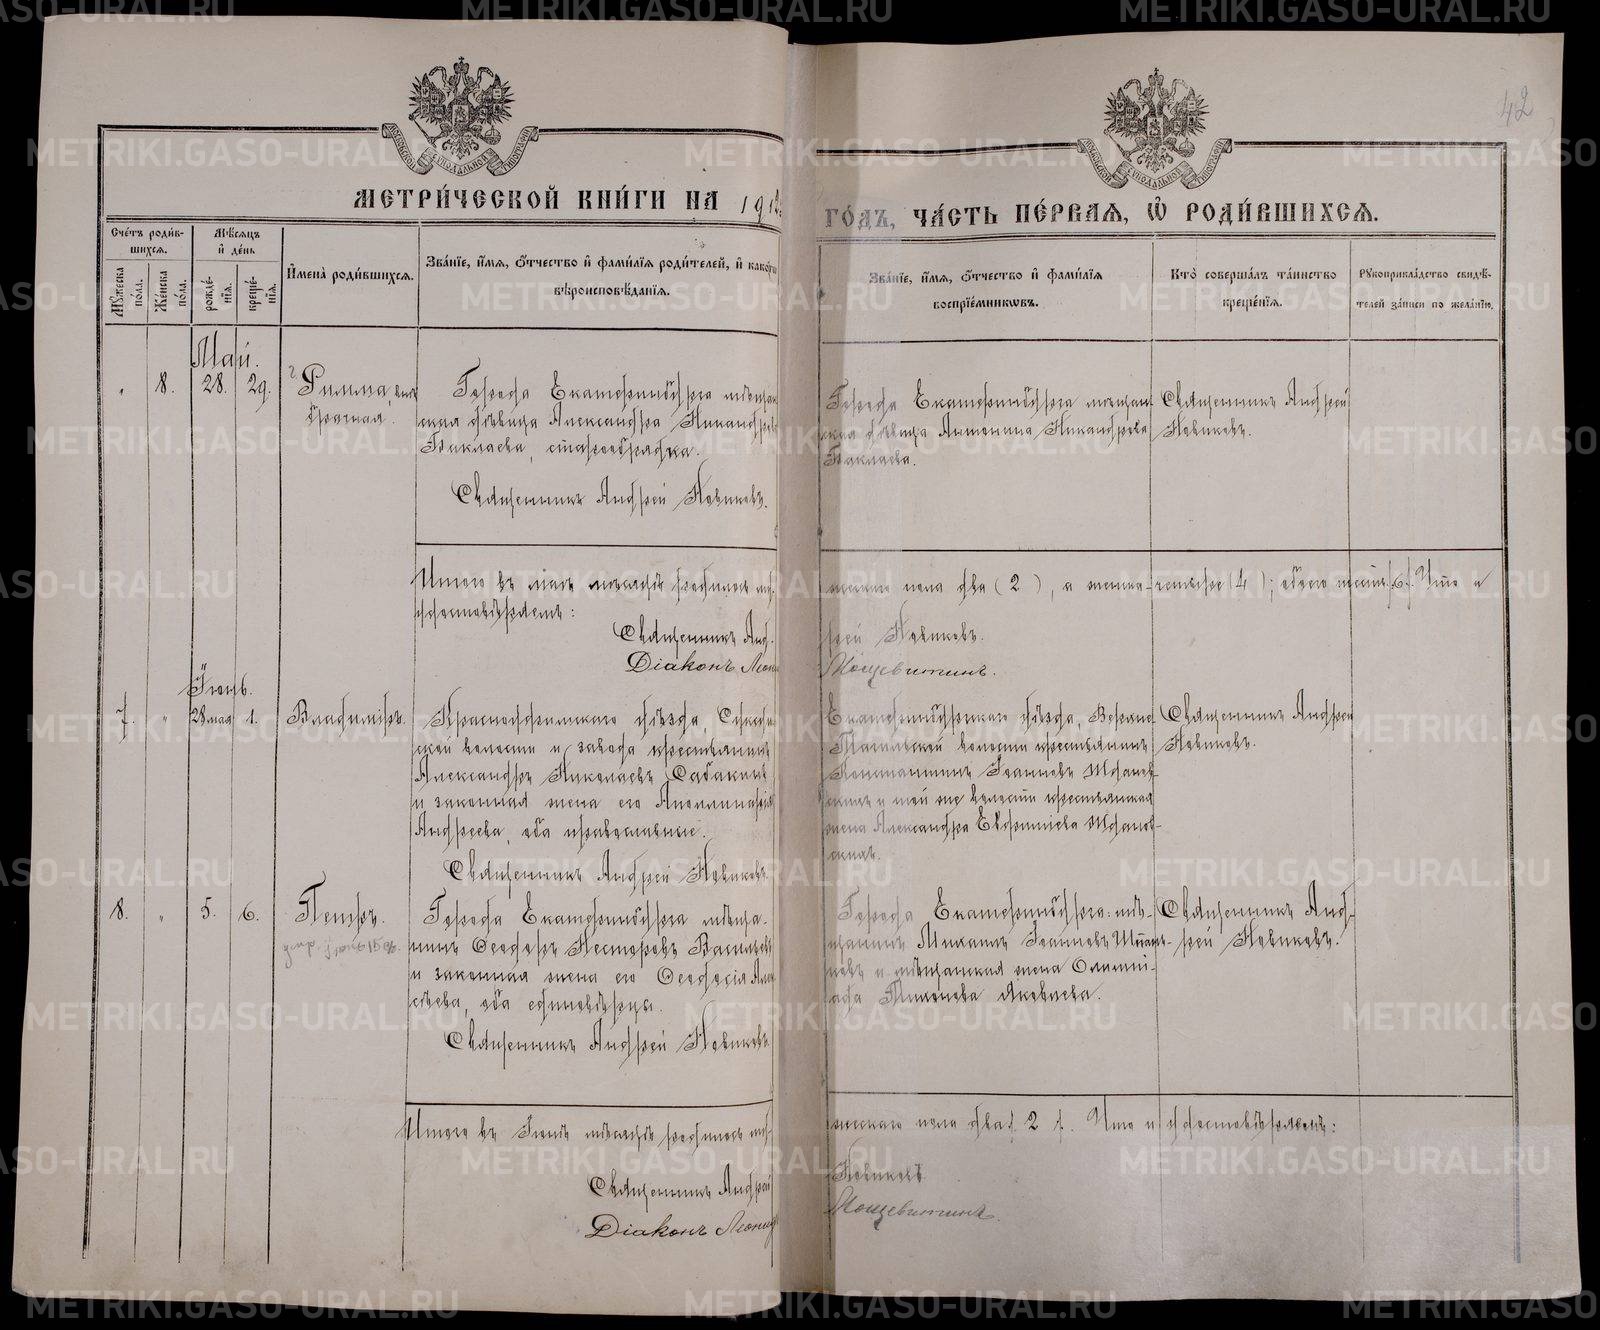 42
МЕТРИ́ЧЕСКОЙ КНИ́ГИ НА 1912
ГО́ДЪ, ЧА́СТЬ ПЕ́РВАЯ, Ѡ҆ РОДИ́ВШИХСЯ.
Сче́тъ роди́в-
шихся.
Мѣ́сяцъ
и҆ де́нь
Мꙋ́жеска
по́ла.
Же́нска
по́ла.
рожде́-
нїя.
креще́-
нїя.
И҆мена̀ роди́вшихся.
Зва́нїе, и҆́мя, ѻ҆́тчество и҆ фами́лїя роди́телей, и҆ како́гѡ
вѣроисповѣ́данїя.
Зва́нїе, и҆́мя, ѻ҆́тчество и҆ фами́лїя
воспрїе́мникѡвъ.
Кто̀ соверша́лъ та́инство
креще́нїя.
Рꙋкоприкла́дство свидѣ́-
телей за́писи по жела́нїю.
Май.
8. 28. 29. Римма, вне-
брачная.
Города Екатеринбурга мѣщан-
ская дѣвица Александра Никандрова
Баклаева, старообрядка.
Священникъ Андрей Новиковъ.
Города Екатеринбурга мѣщан-
ская дѣвица Антонина Никандрова
Баклаева.
Священникъ Андрей
Новиковъ.
Итого въ маѣ мѣсяцѣ родилось му-
жескаго пола два (2), а женска- четыре (4); обоего шесть (6). Что и
удостовѣряемъ:
Священникъ Анд-
рей Новиковъ.
Діаконъ Леонид
Мощевитинъ.
Іюнь.
7. " 28 мая 1. Владиміръ.
Красноуфимскаго уѣзда,
ской волости и завода крестьянинъ
Александръ Николаевъ Сабакинъ
и законная жена его Аполлинарія
Андреева, оба православные.
Священникъ Андрей Новиковъ.
Екатеринбургскаго уѣзда, Верхне-
Тагильской волости крестьянинъ
Константинъ Іоанновъ
и той же волости крестьянская
жена Александра
Священникъ Андрей
Новиковъ.
8. " 5. 6. Петръ.
умр. Іюнь 15
Города Екатеринбурга мѣща-
нинъ Ѳеодоръ Несторовъ Васильевъ
и законная жена его Ѳеодосія Алек-
сѣева, оба единовѣрцы.
Священникъ Андрей Новиковъ
Города Екатеринбурга: мѣ-
щанинъ Михаилъ Іоанновъ
и мѣщанская жена Олимпі-
ада Тихонова Яковлева.
Священникъ Анд-
рей Новиковъ.
Итого въ Іюнѣ мѣсяцѣ родилось му-
жескаго пола два (2). Что и удостовѣряемъ:
Священникъ Андрей
Новиковъ
Діаконъ Леонид
Мощевитинъ.
METRIKI.GASO-URAL.RU